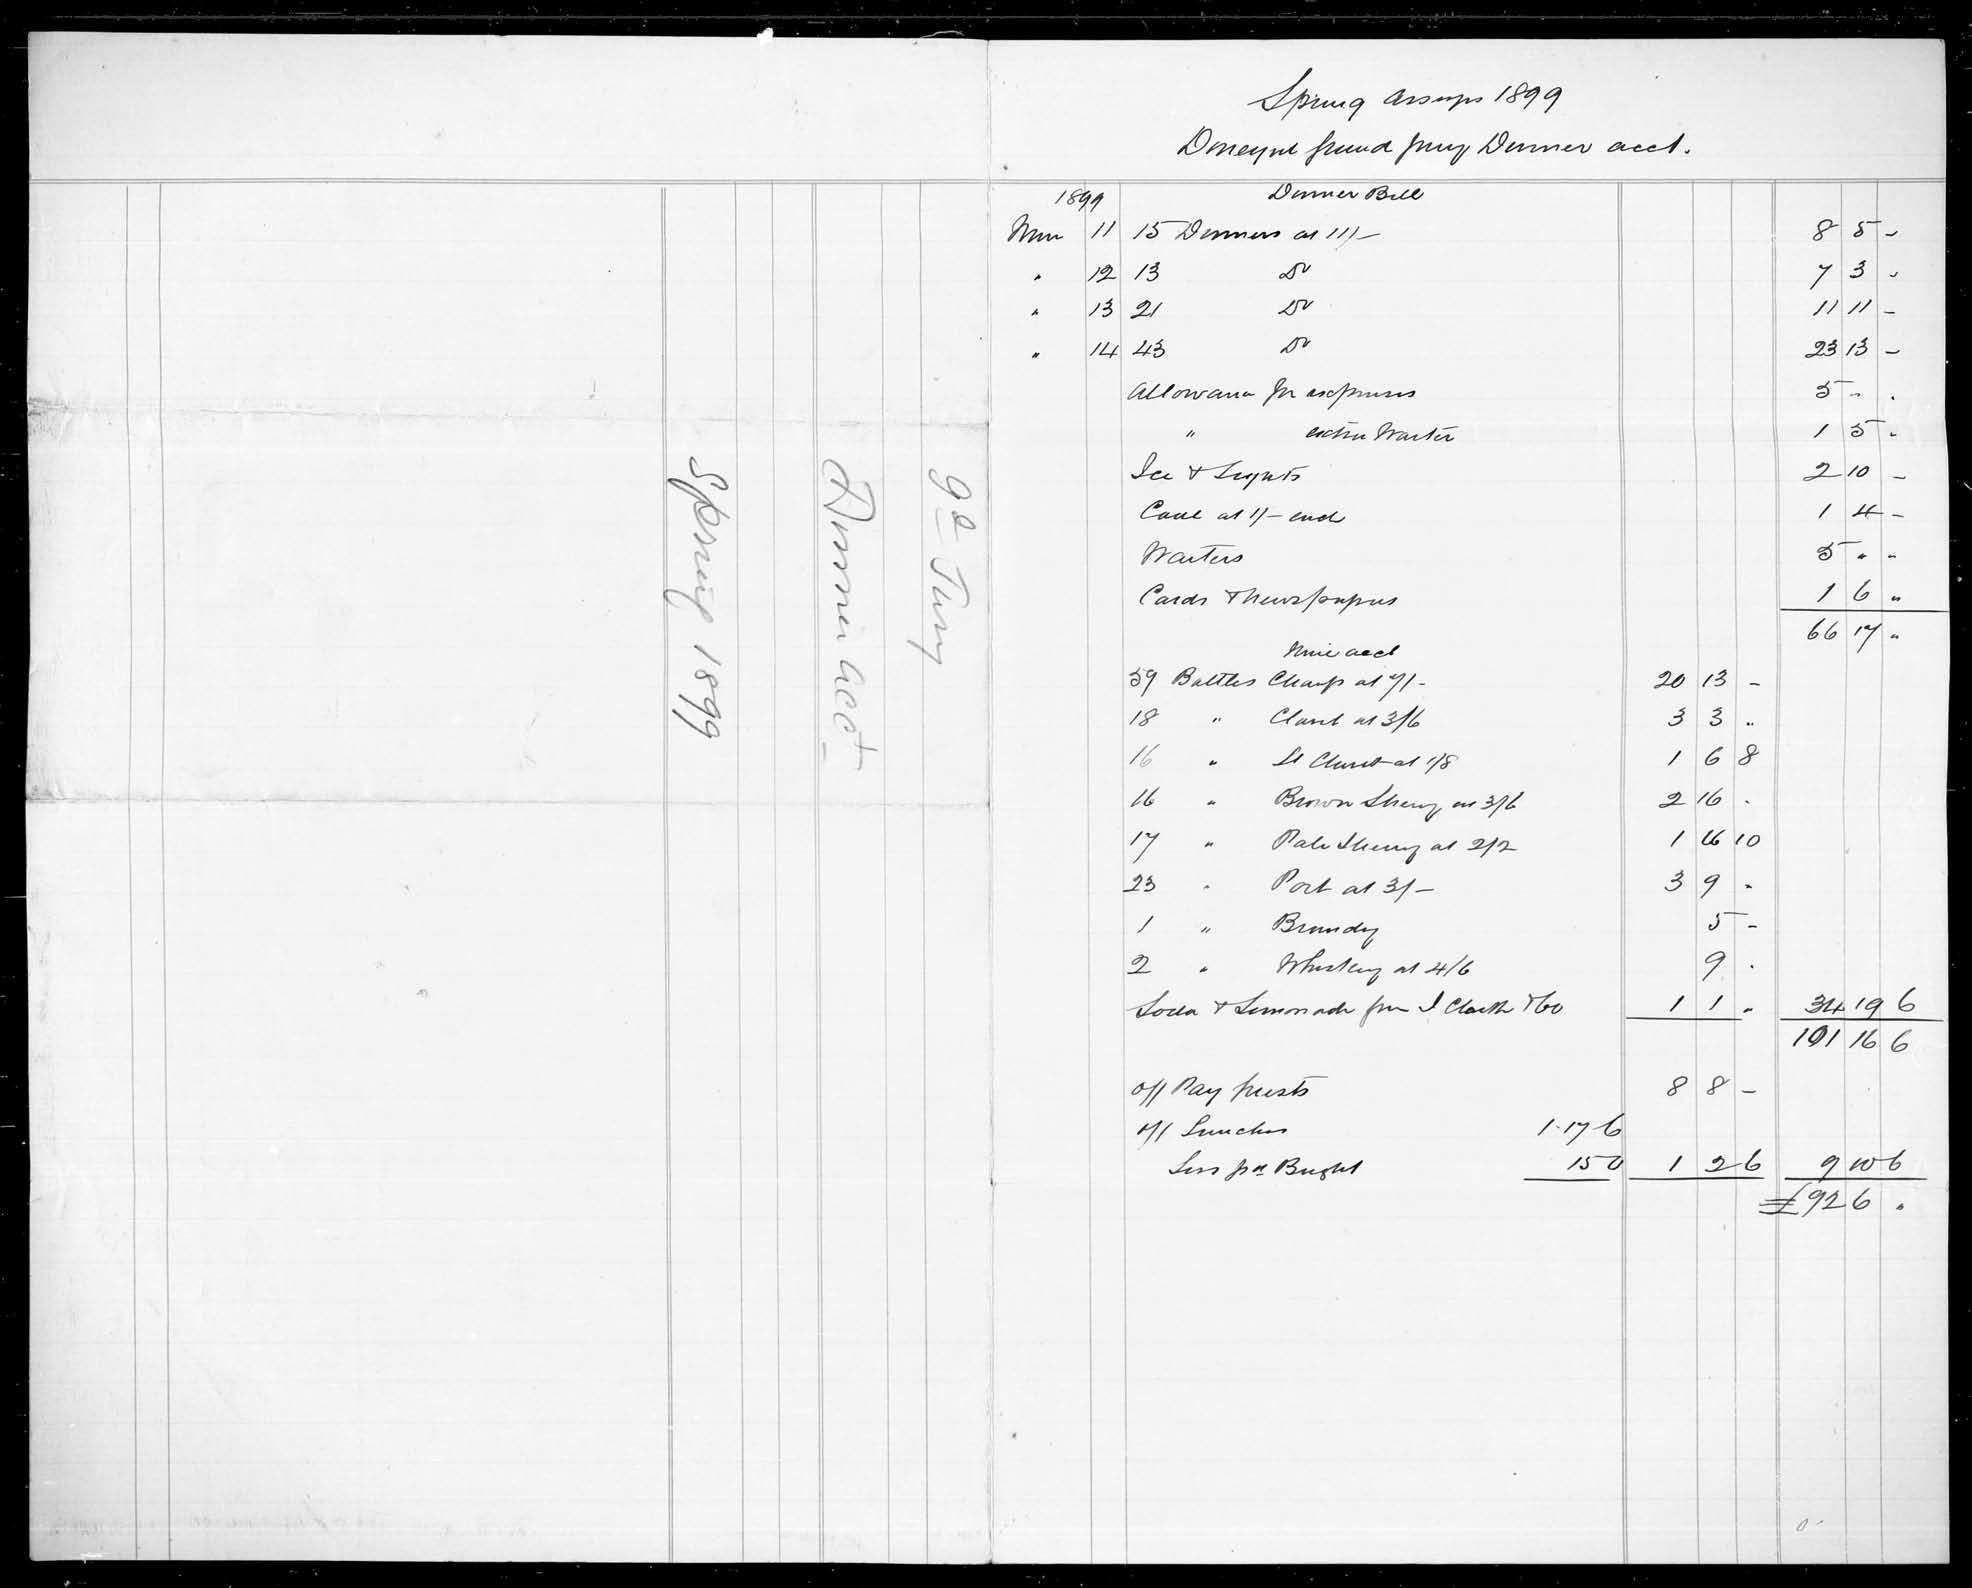 Gd Jury
Dinner acct
Spring 1899
Spring Assizes 1899
Donegal Grand Jury Dinner acct.
1899 Dinner Bill
Mar 11 15 Dinners at 11/- 8 5 -
" 12 13 Do 7 3 "
" 13 21 Do 11 11 -
" 14 43 Do 23 13 -
Allowance for expenses 5 - -
" extra Waiter 1 5 -
Ice & Lights 2 10 -
at 1/- each 1 4 -
Waiters 5 " "
Cards & Newspapers 1 6 "
66 17 "
Wine acct
59 Bottles Champ at 7/- 20 13 -
18 " Claret at 3/6 3 3 "
16 " Lt Claret at 1/8 1 6 8
16 " Brown Sherry at 3/6 2 16 -
17 " Pale Sherry at 2/2 1 16 10
23 " Port at 3/- 3 9 -
1 " Brandy 5 -
2 " Whiskey at 4/6 9 -
Soda & Lemonade from J Clarke & Co 1 1 " 34 19 6
101 16 6
off Pay Guests 8 8 -
off Lunches 1-17-6
Less pd Bright 15 0 1 2 6 9 10 6
£92 6 "